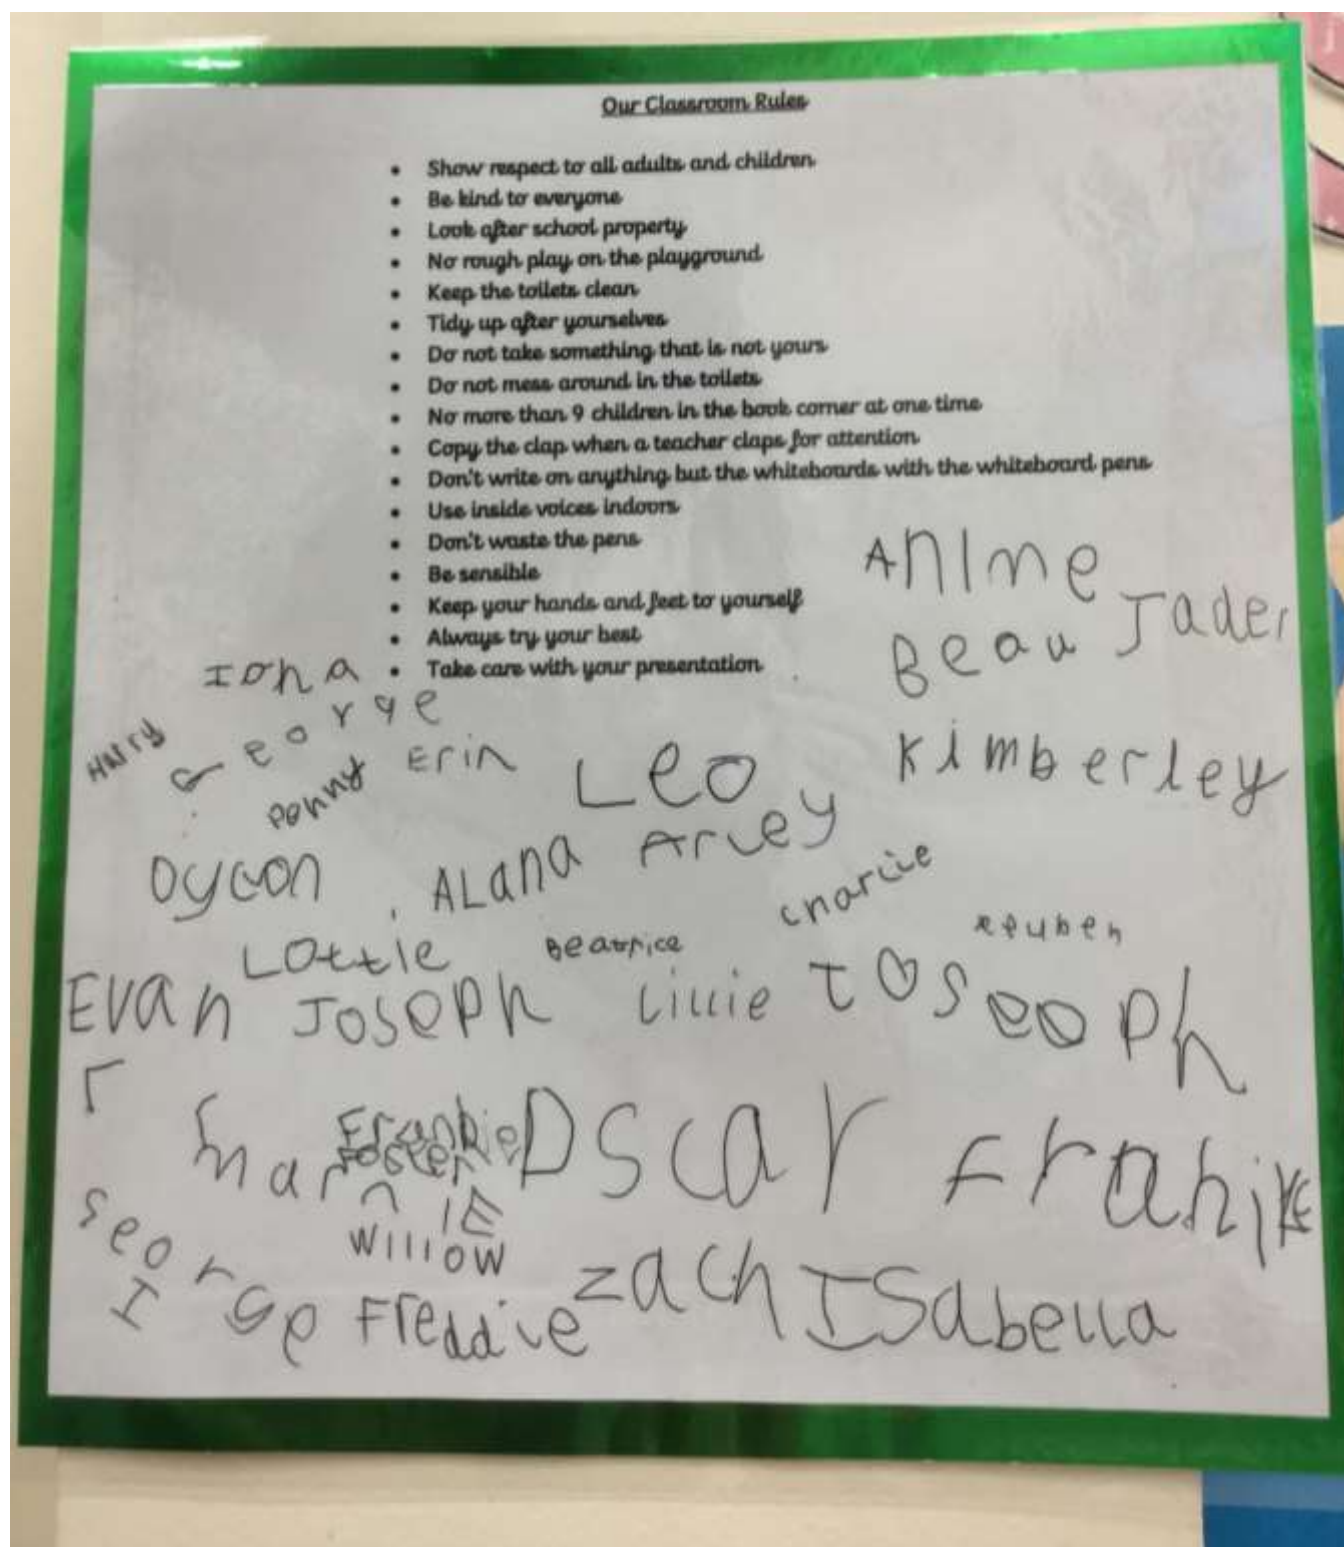 Our Classroom Rules
• Show respect to all adults and children
• Be kind to everyone
• Look after school property
• No rough play on the playground
• Keep the toilets clean
• Tidy up after yourselves
• Do not take something that is not yours
• Do not mess around in the toilets
• No more than 9 children in the book corner at one time
• Copy the clap when a teacher claps for attention
• Don't write on anything but the whiteboards with the whiteboard pens
• Use inside voices indoors
• Don't waste the pens
• Be sensible
• Keep your hands and feet to yourself
• Always try your best
• Take care with your presentation
AnIme
Beau Jader
Iona
Harry George
Penny Erin Leo Kimberley
ALana Arley
Charlie
Lottie Beatrice Reuben
Evan Joseph Lillie Joseoph
Frankie Oscar
Willow
George Freddie Zach ISabella